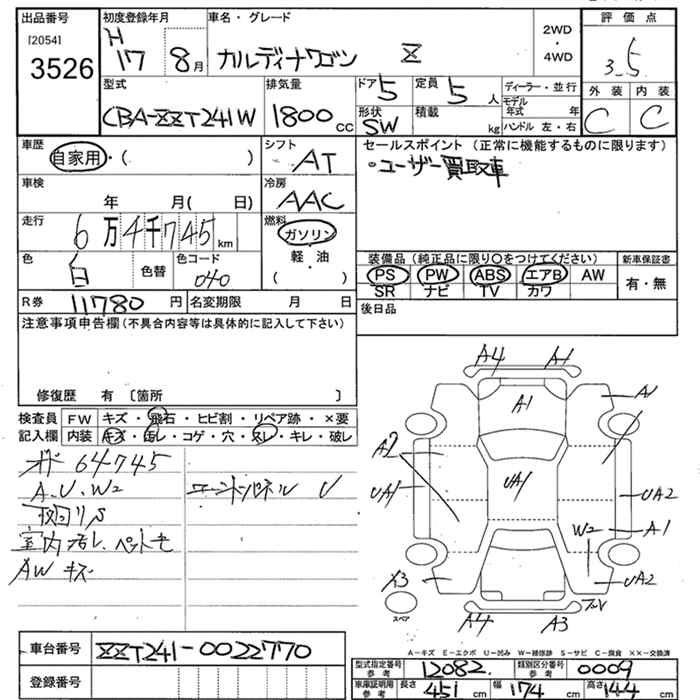 出品番号 初度登録年月 車名・グレード 評価点
[2054] 3526 H 17 8月 カルディナワゴン Z 2WD・4WD 3.5
外装 内装
C C
型式 排気量 ドア 5 定員 5人 ディーラー・並行
モデル年式 年
CBA-ZZT241W 1800cc 形状 SW 積載 kg ハンドル 左・右
車歴 シフト セールスポイント (正常に機能するものに限ります)
自家用・( ) AT ・ユーザー買取車
車検 冷房
年 月( 日) AAC
走行 燃料
6万4千745km ガソリン・軽油・( )
色 色替 色コード 装備品 (純正品に限り○をつけてください) 新車保証書
白 040 PS PW ABS エアB AW 有・無
SR ナビ TV カワ
R券 11780円 名変期限 月 日 後日品
注意事項申告欄 (不具合内容等は具体的に記入して下さい)
修復歴 有 〔箇所 〕
検査員 FW キズ・飛石・ヒビ割・リペア跡・×要
記入欄 内装 キズ・汚レ・コゲ・穴・スレ・キレ・破レ
64745
A.U.W2 U
下回りS
室内汚レ ペット毛
AW キズ
A4 A1
A1 A1
A2
UA1 UA1 UA2
W2 A1
X3 UA2
スペア
A4 A3
A-キズ E-エクボ U-凹み W-補修跡 S-サビ C-腐食 ××-交換済
車台番号 ZZT241-0022770 型式指定番号 参考 12082 類別区分番号 参考 0009
登録番号 車庫証明用 参考 長さ 451cm 幅 174cm 高さ 144cm